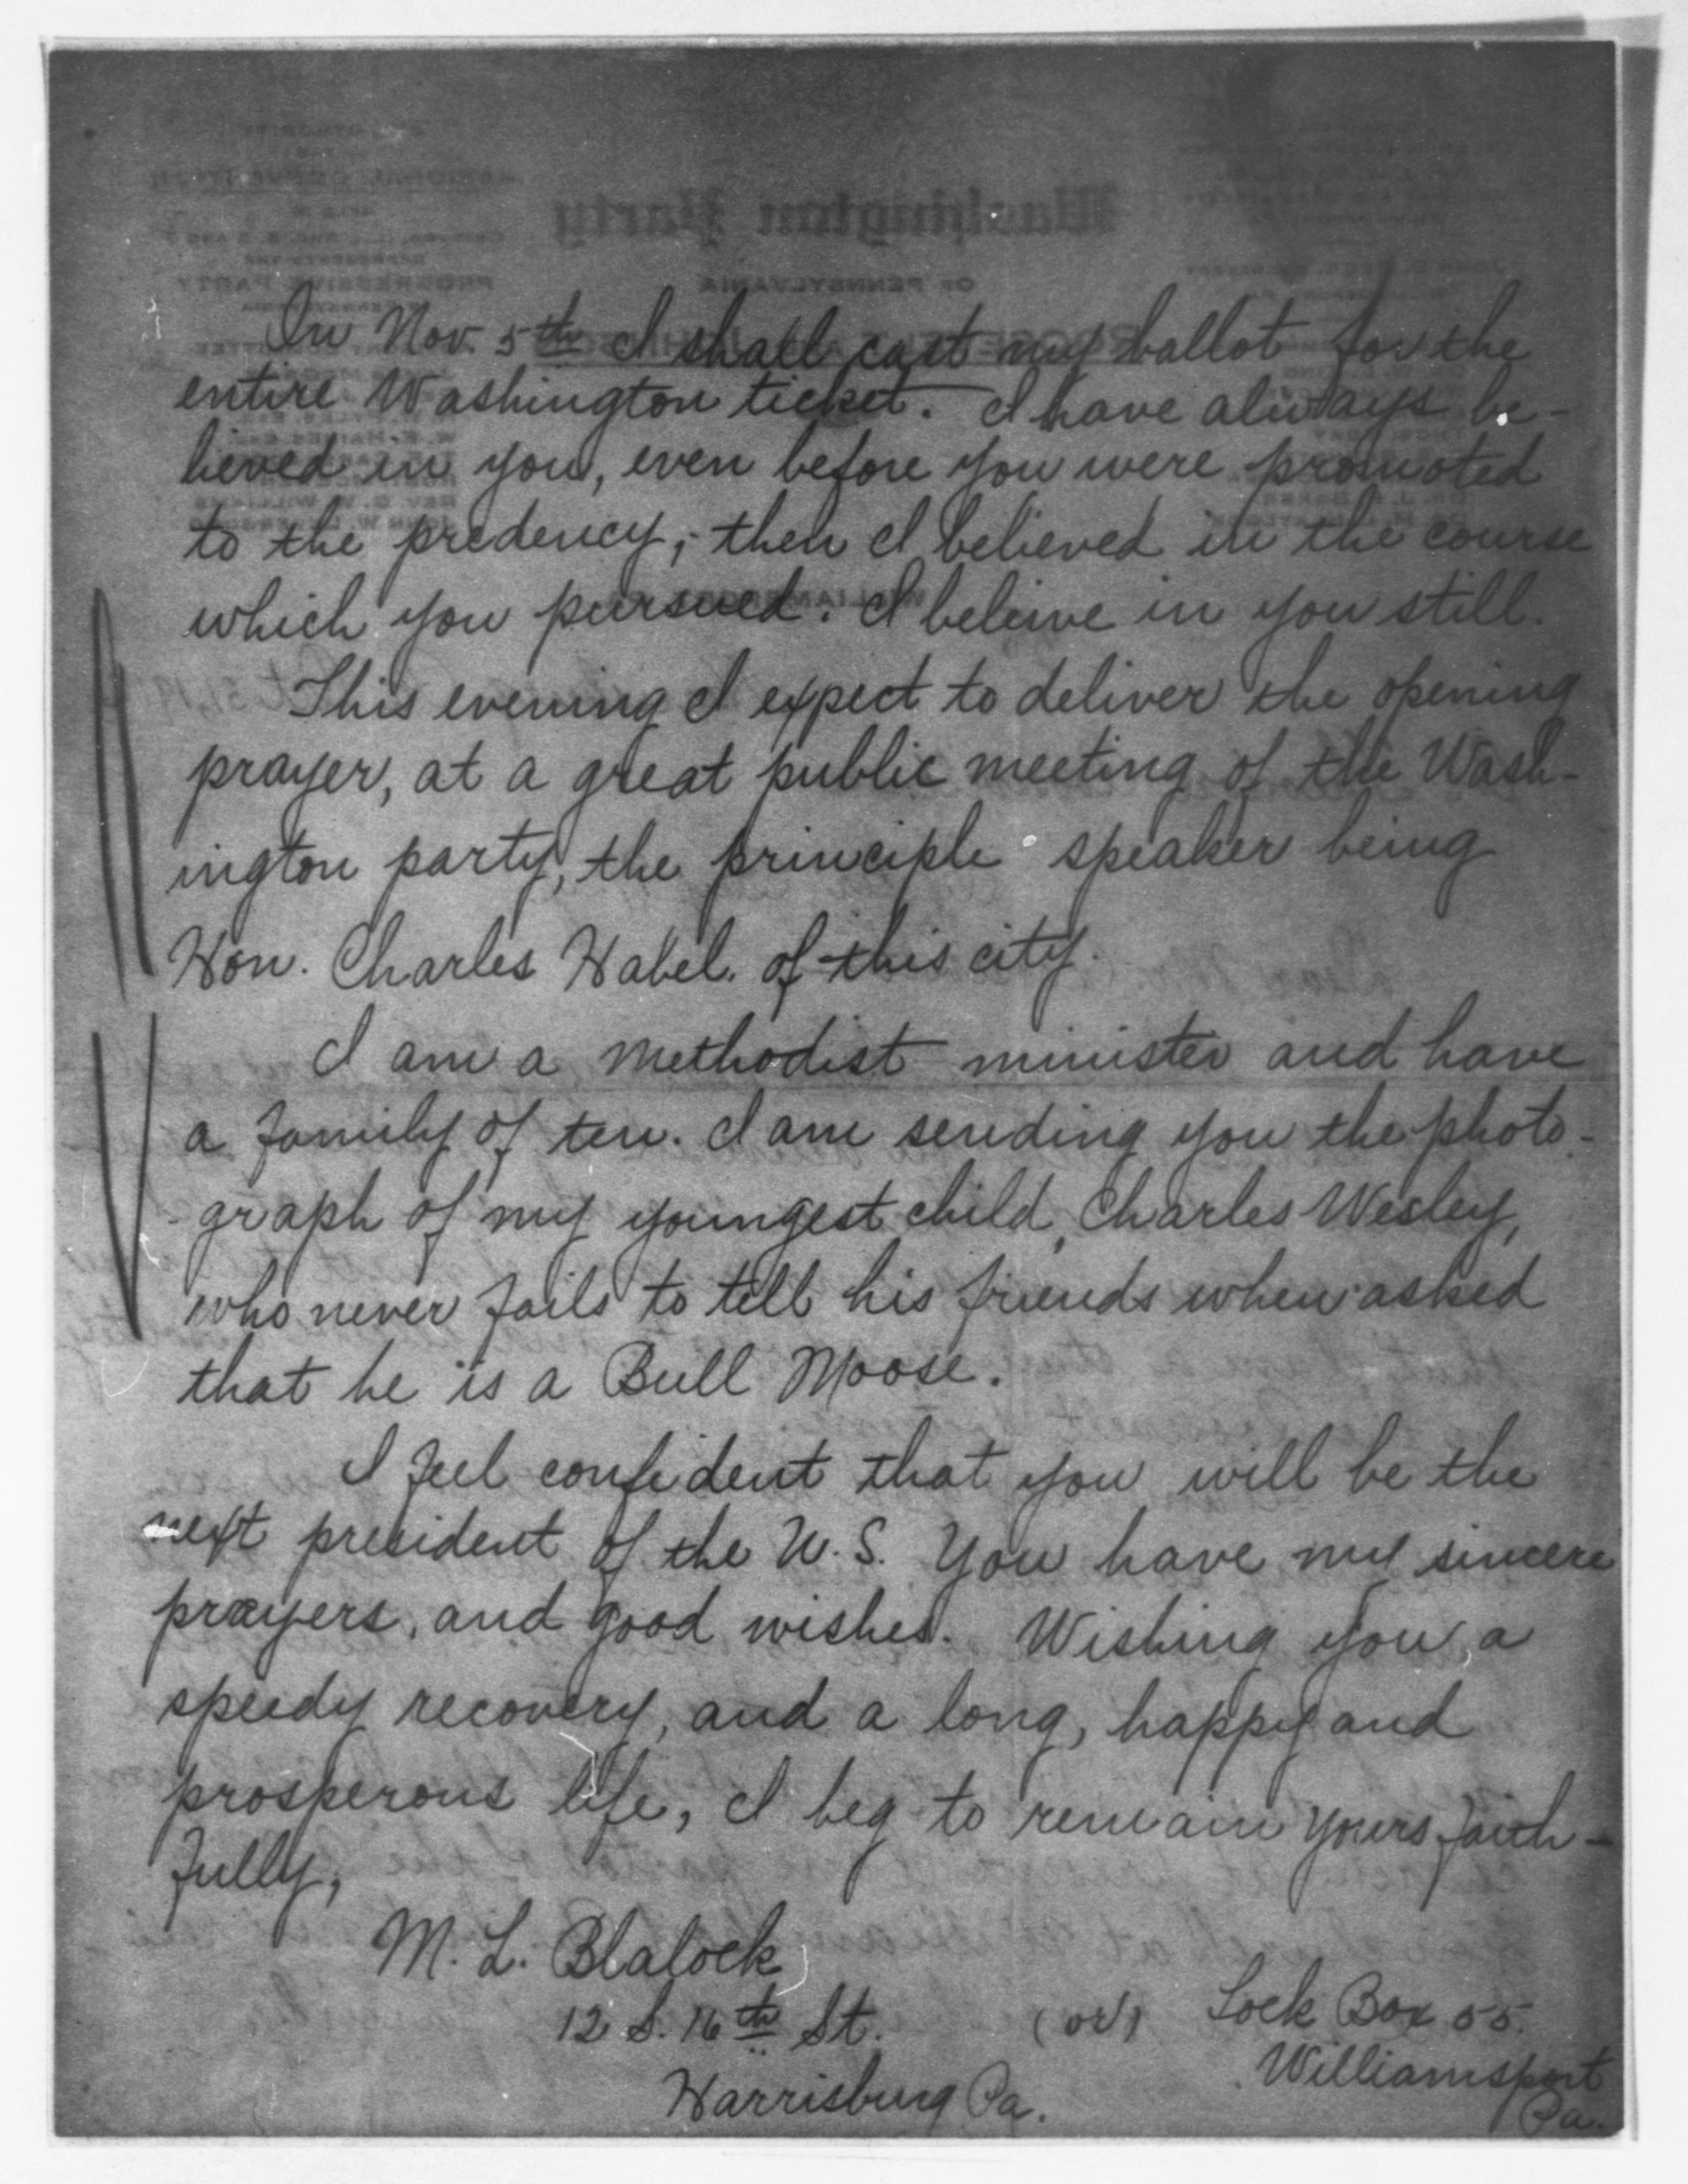 On Nov. 5th I shall cast my ballot for the
entire Washington ticket. I have always be-
lieved in you, even before you were promoted
to the predency; then I believed in the course
which you pursued. I beleive in you still.
This evening I expect to deliver the opening
prayer, at a great public meeting of the Wash-
ington party, the principle speaker being
Hon. Charles Habel. of this city.
I am a Methodist minister and have
a family of ten. I am sending you the photo-
graph of my youngest child, Charles Wesley,
who never fails to tell his friends when asked
that he is a Bull Moose.
I feel confident that you will be the
next president of the U.S. You have my sincere
prayers, and good wishes. Wishing you, a
speedy recovery, and a long, happy and
prosperous life, I beg to remain yours faith-
fully,
M. L. Blalock
12 S. 16th St. (or) Lock Box 55.
Harrisburg Pa. Williamsport
Pa.